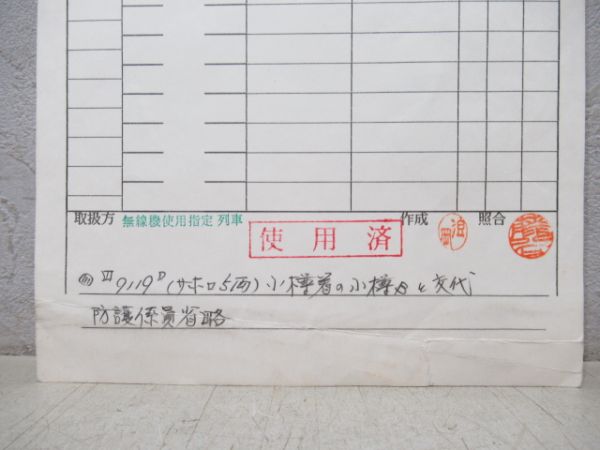 取扱方 無線機使用指定 列車 作成 照合
使用済
9119D (サホロ5両) 小樽着の小樽 と交代
防護係員省略